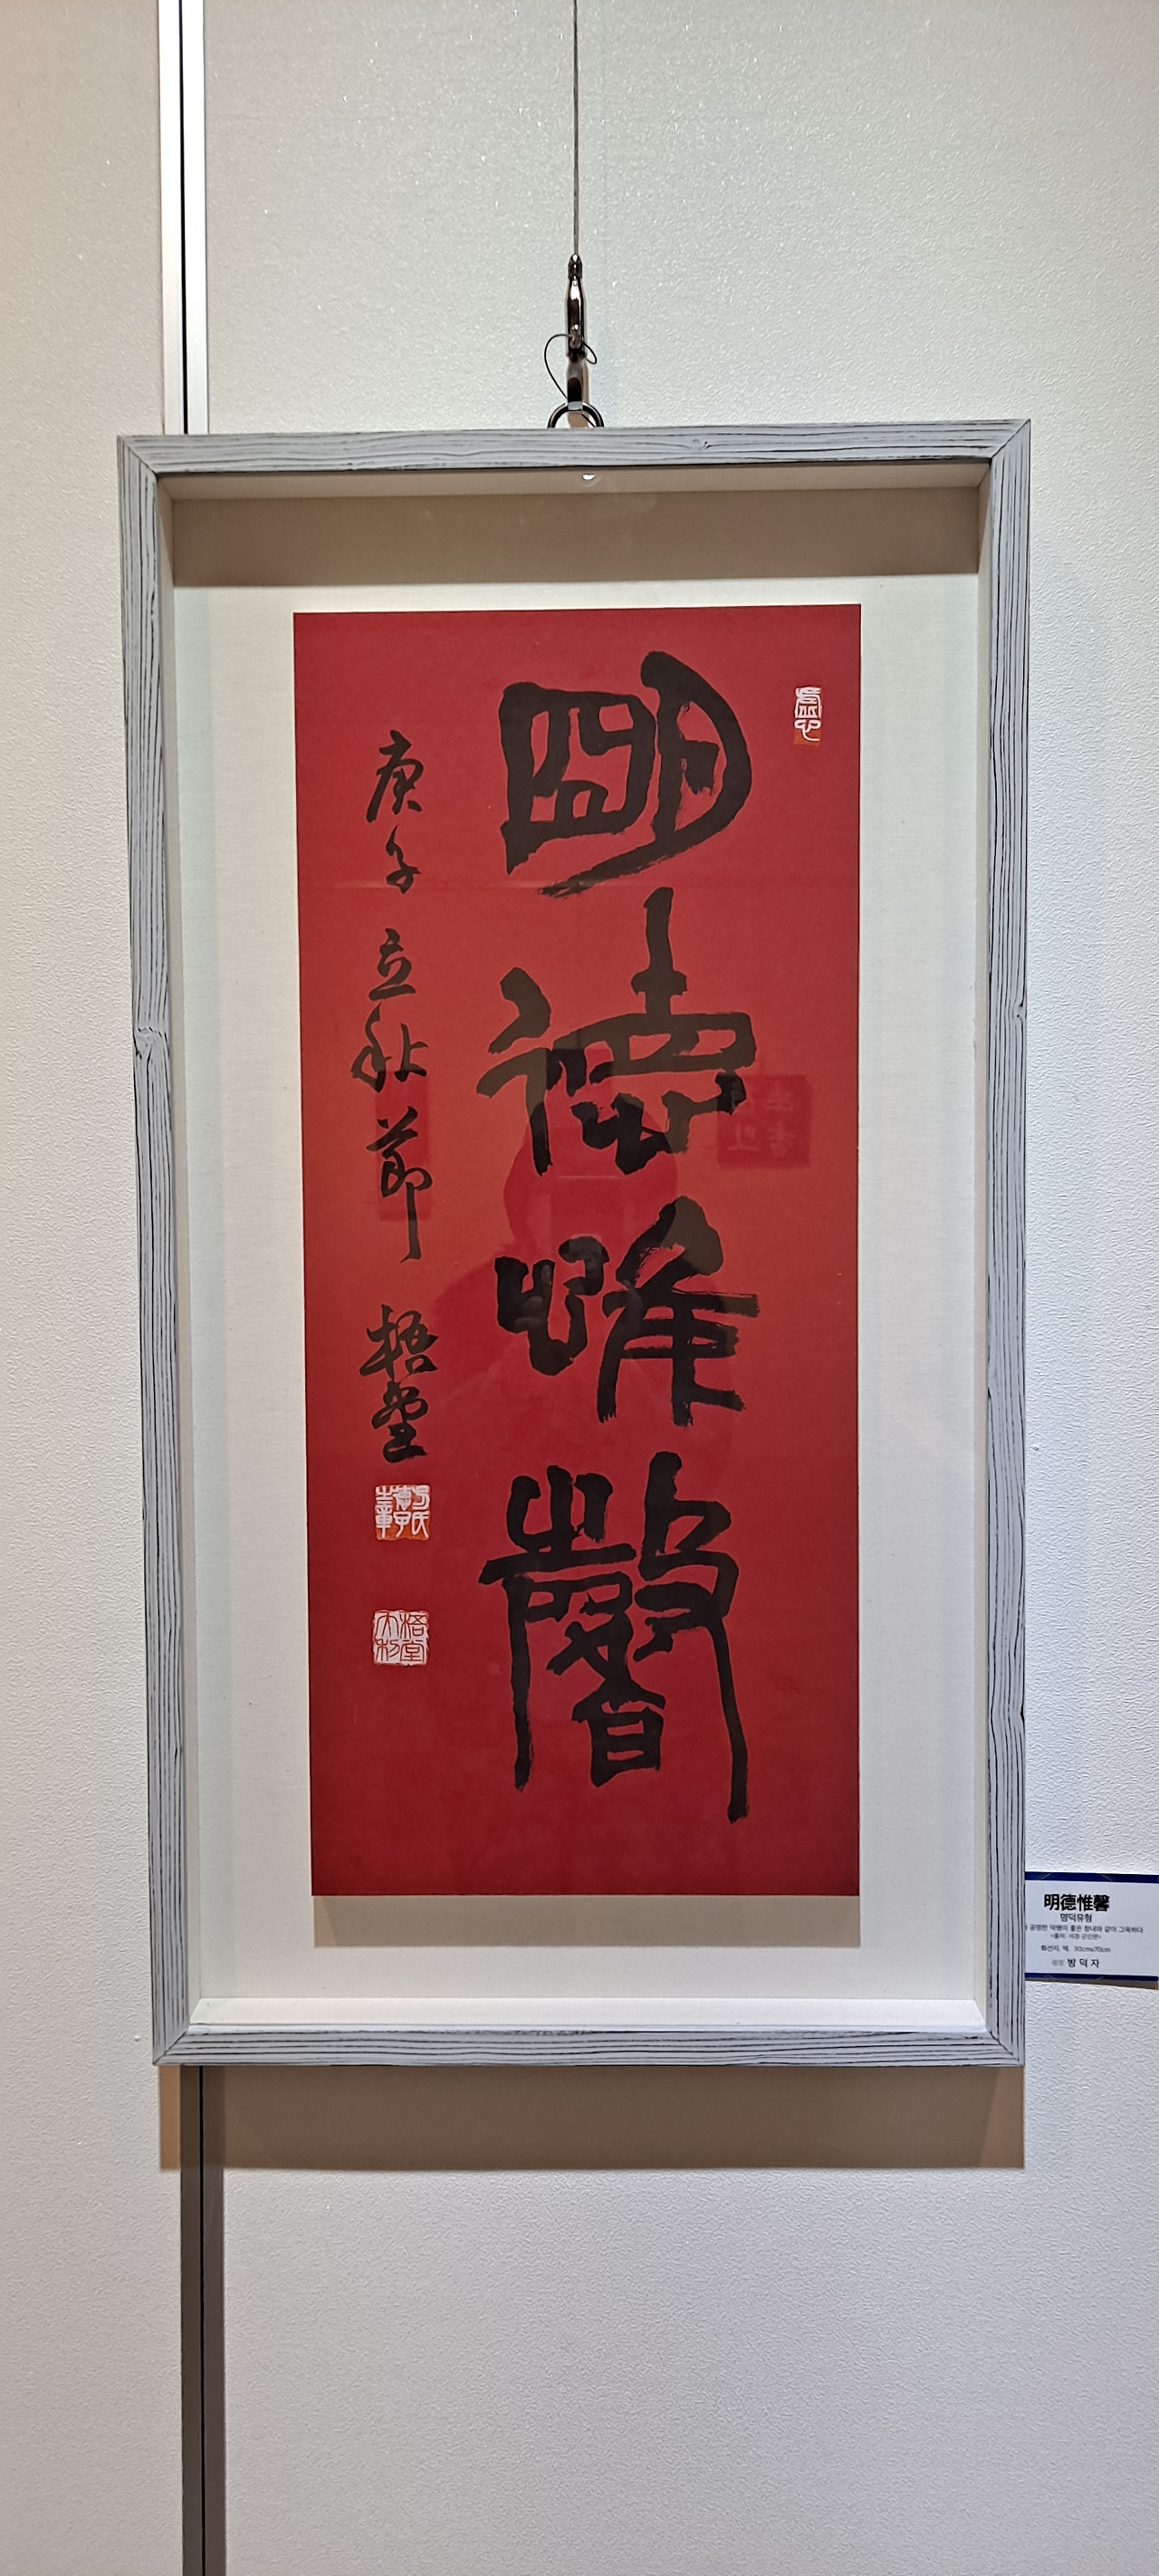 明德惟馨
庚子立秋節 梧堂
明德惟馨
명덕유형
공명한 덕행이 좋은 향내와 같이 그윽하다
<출처: 서경 군진편>
화선지, 먹, 30cmx70cm
梧堂 방덕자